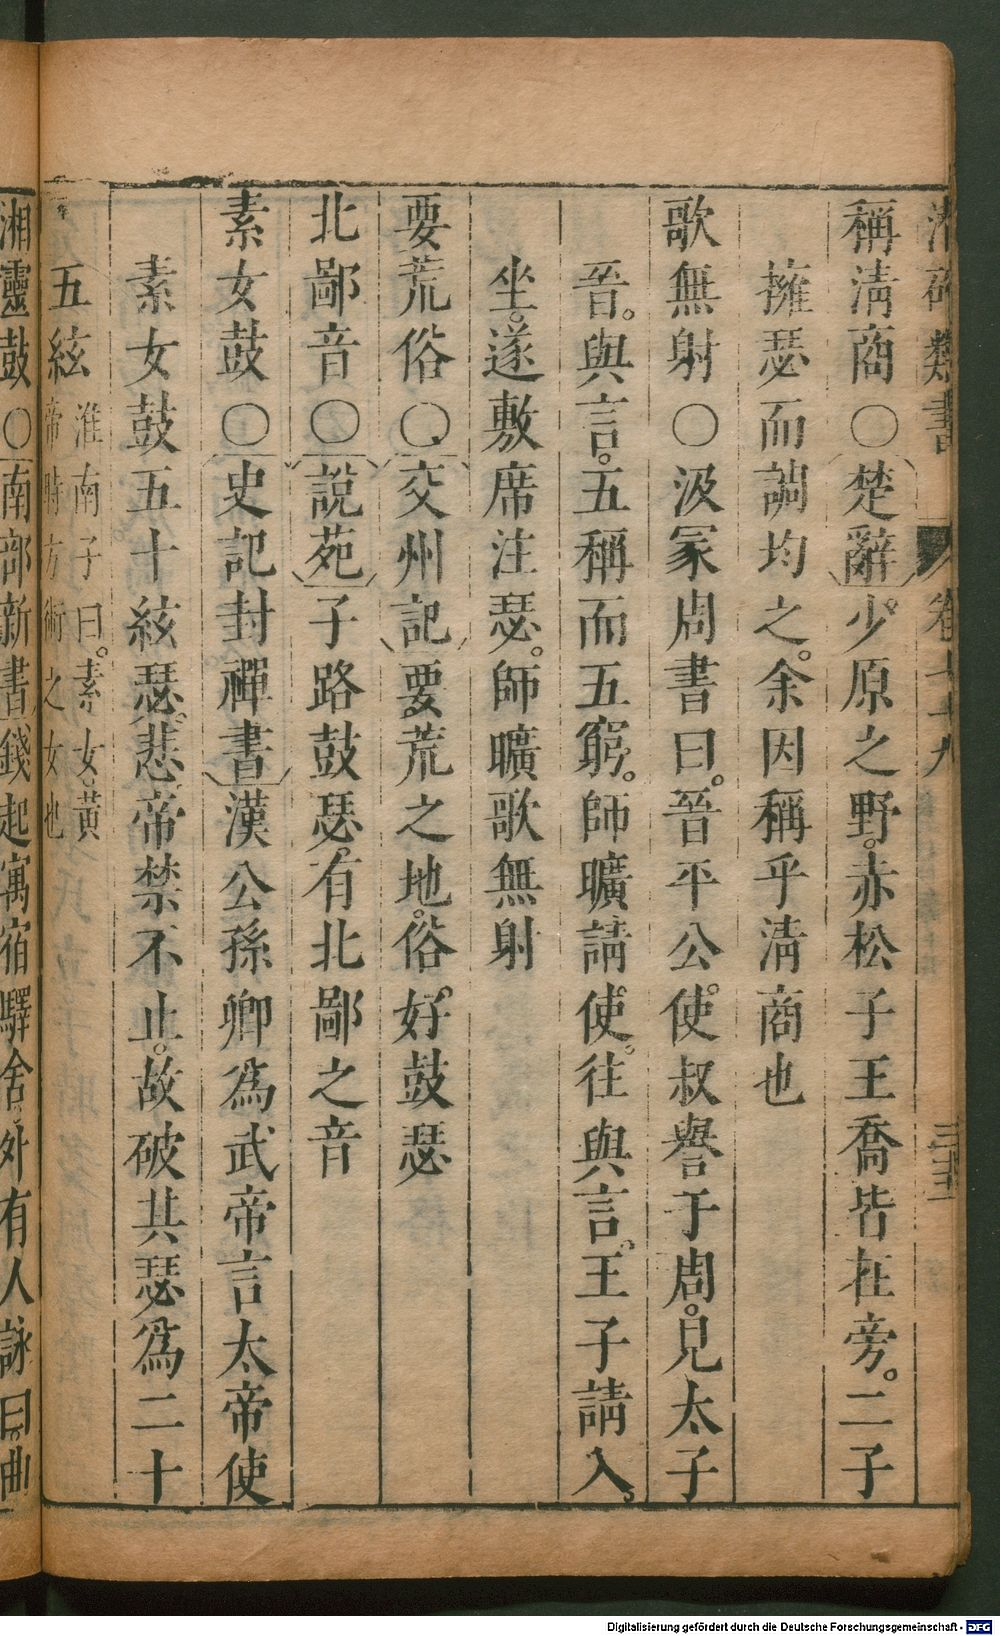 稱淸商〇楚辭少。原之野。赤松子王喬皆在旁。二子
擁瑟而調均之。余因稱乎淸商也
歌無射〇汲冢周書曰。晉平公使。叔譽于周。見太子
晉。與言。五稱而五窮。師曠請使。往與言。王子請入。
坐。遂敷席注瑟。師曠歌無射
要荒俗〇交州記要荒之地。俗。好鼓瑟
北鄙音〇說苑子路鼓瑟。有北鄙之音
素女鼓〇史記封禪書漢公孫卿爲武帝言太帝使
素女鼓五十絃瑟。悲。帝禁不止。故破其瑟爲二十
五絃淮南子曰。素女。黃
帝時方術之女也
湘靈鼓〇南部新書錢起寓宿驛舍。外有人詠曰。曲
類書 卷七十九
Digitalisierung gefördert durch die Deutsche Forschungsgemeinschaft - DFG